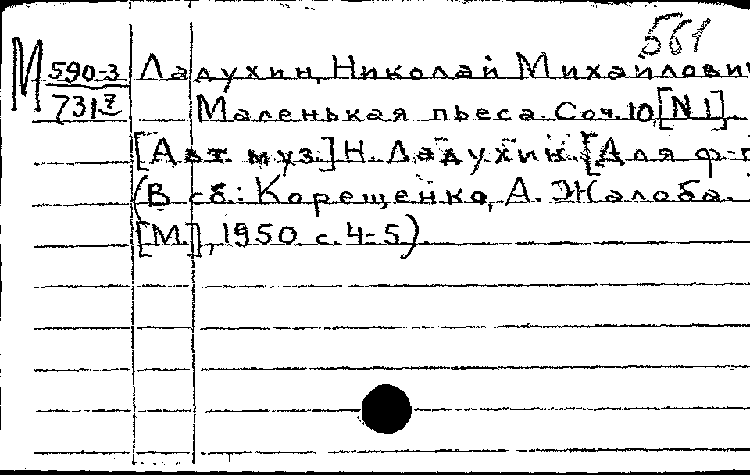 561
М 590-3 Ладухин, Николай Михайлович
731 Маленькая пьеса. Соч. 10 [N 1].
[Авт. муз.] Н. Ладухин. [Для ф-п
(В сб.: Корещенко, А. Жалоба.
[М.], 1950 с. 4-5).